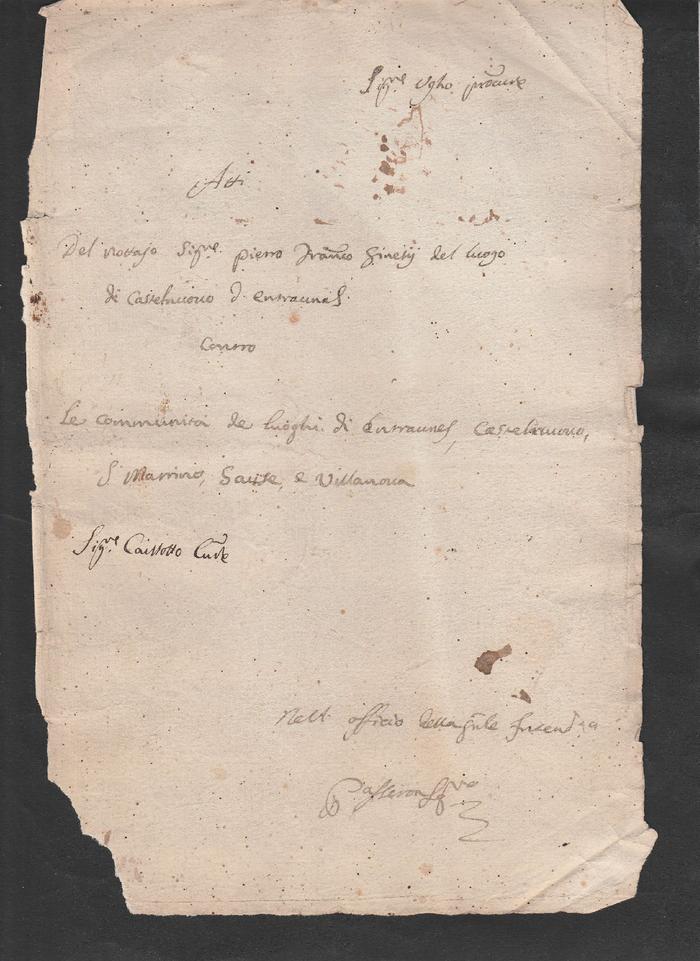 Sig.re Ugho procure
Atti
Del Nottajo Sig.re Pietro Franco Ginesij del luogo
di Castelnuovo d'Entraunes
Contro
Le Communità de luoghi di Entraunes, Castelnuovo,
S. Martino, Sause, e Villanova
Sig.re Caissotto Cur.e
Nell officio della g.nle Intend.za